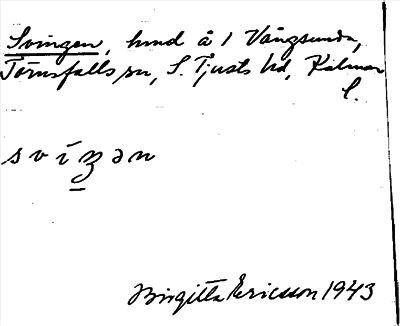 Svingen, hmd å 1 Vångsunda,
Törnsfalls sn, S. Tjusts hd, Kalmar
l.
svíŋən
Birgitta Ericsson 1943